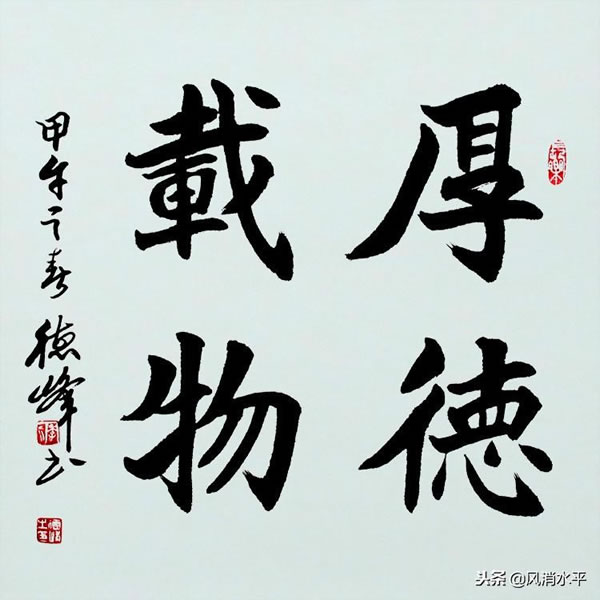 厚德
載物
甲午之春德峰书
头条@风消水平